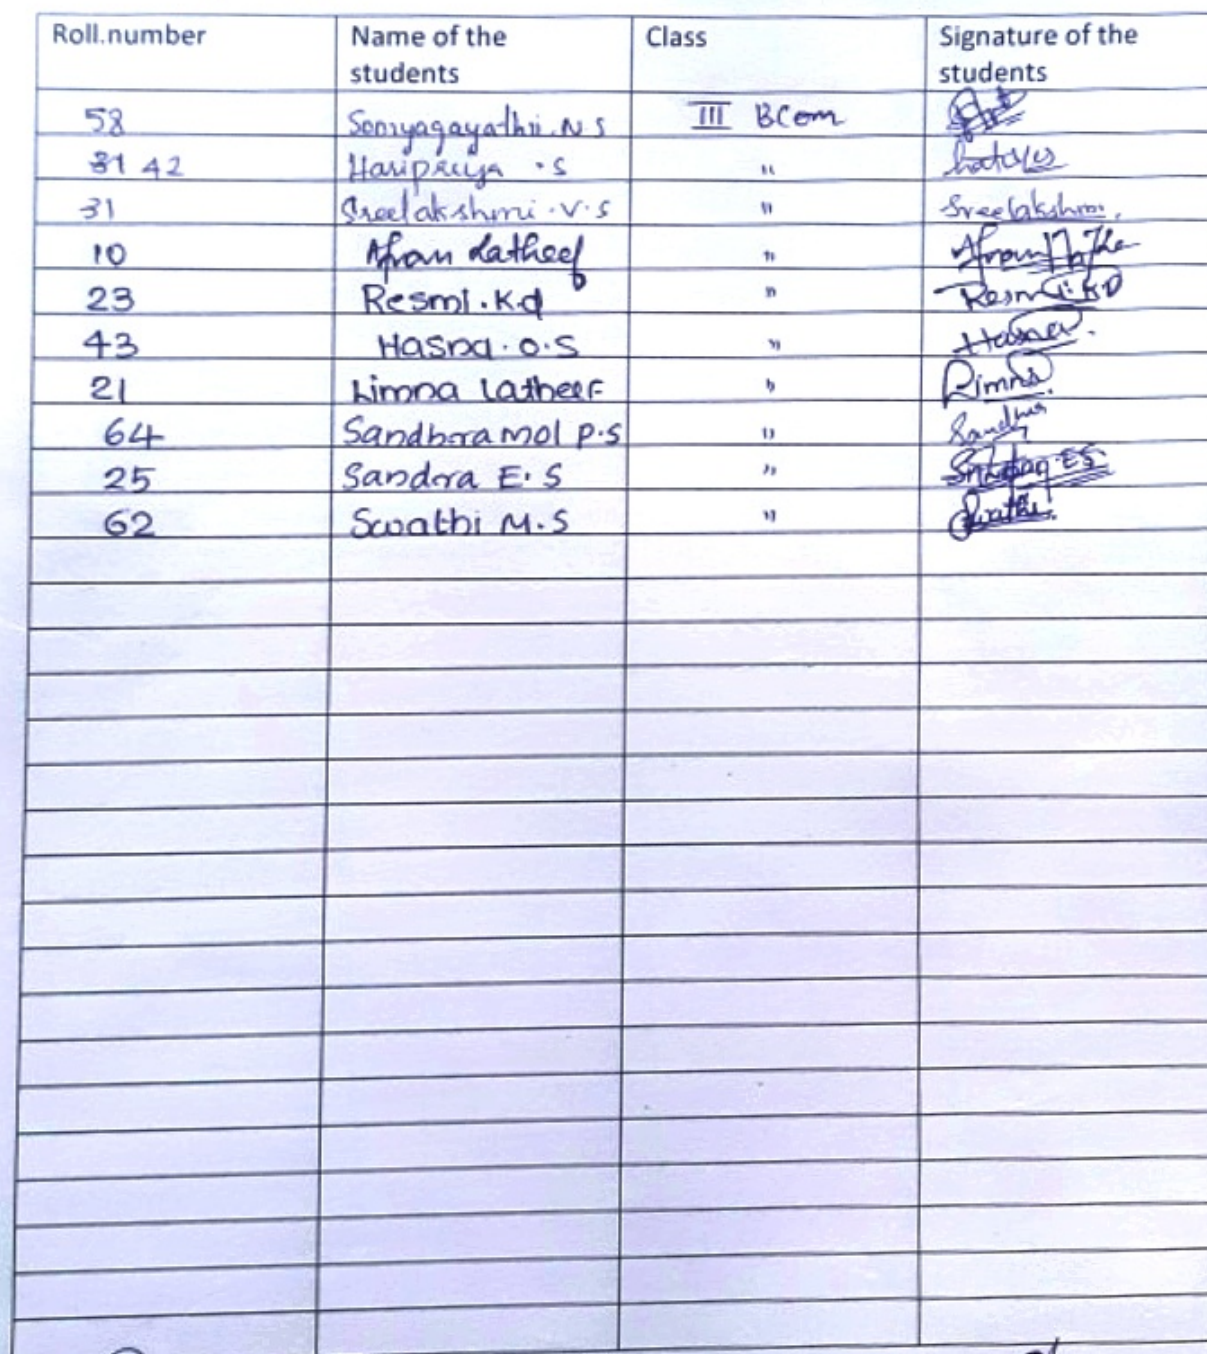 Roll.number Name of the students Class Signature of the students
58 Somyagayathri.N S III BCom
31 42 Haripriya .S "
31 Sreelakshmi.V.S " Sreelakshmi.
10 Afran Latheef "
23 Resmi.Kd " Resmi.KD
43 Hasna.O.S " Hasna.
21 Limna Latheef " Limna
64 Sandhramol P.S "
25 Sandra E.S "
62 Swathi M.S " Swathi.